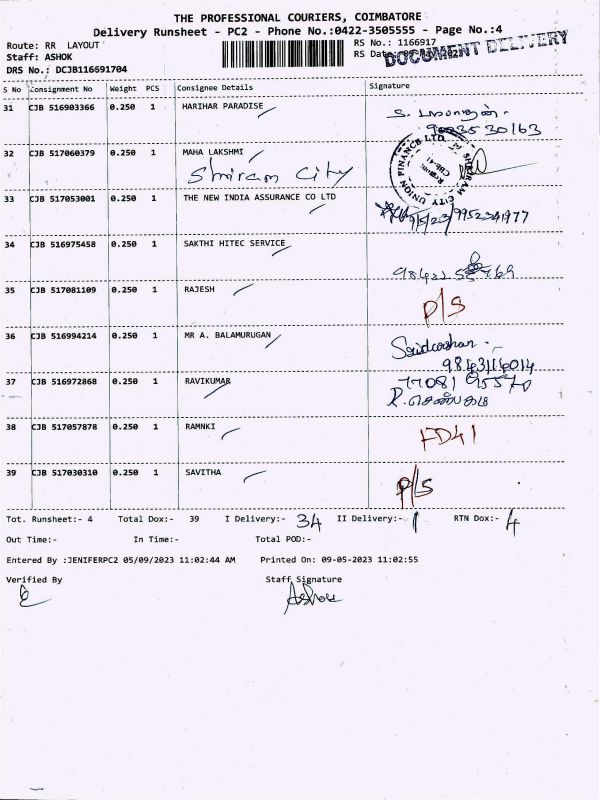 THE PROFESSIONAL COURIERS, COIMBATORE
Delivery Runsheet - PC2 - Phone No.:0422-3505555 - Page No.:4
Route: RR LAYOUT RS No.: 1166917
Staff: ASHOK RS Date:
DOCUMENT DELIVERY
DRS No.: DCJB116691704
S No Consignment No Weight PCS Consignee Details Signature
31 CJB 516903366 0.250 1 HARIHAR PARADISE
32 CJB 517060379 0.250 1 MAHA LAKSHMI
Shriram City
SHRIRAM CITY UNION FINANCE LTD.
33 CJB 517053001 0.250 1 THE NEW INDIA ASSURANCE CO LTD
34 CJB 516975458 0.250 1 SAKTHI HITEC SERVICE
35 CJB 517081109 0.250 1 RAJESH P/S
36 CJB 516994214 0.250 1 MR A. BALAMURUGAN
9843114014
37 CJB 516972868 0.250 1 RAVIKUMAR
38 CJB 517057878 0.250 1 RAMNKI
39 CJB 517030310 0.250 1 SAVITHA P/S
Tot. Runsheet:- 4 Total Dox:- 39 I Delivery:- 34 II Delivery:- 1 RTN Dox:- 4
Out Time:- In Time:- Total POD:-
Entered By :JENIFERPC2 05/09/2023 11:02:44 AM Printed On: 09-05-2023 11:02:55
Verified By Staff Signature
Ashok